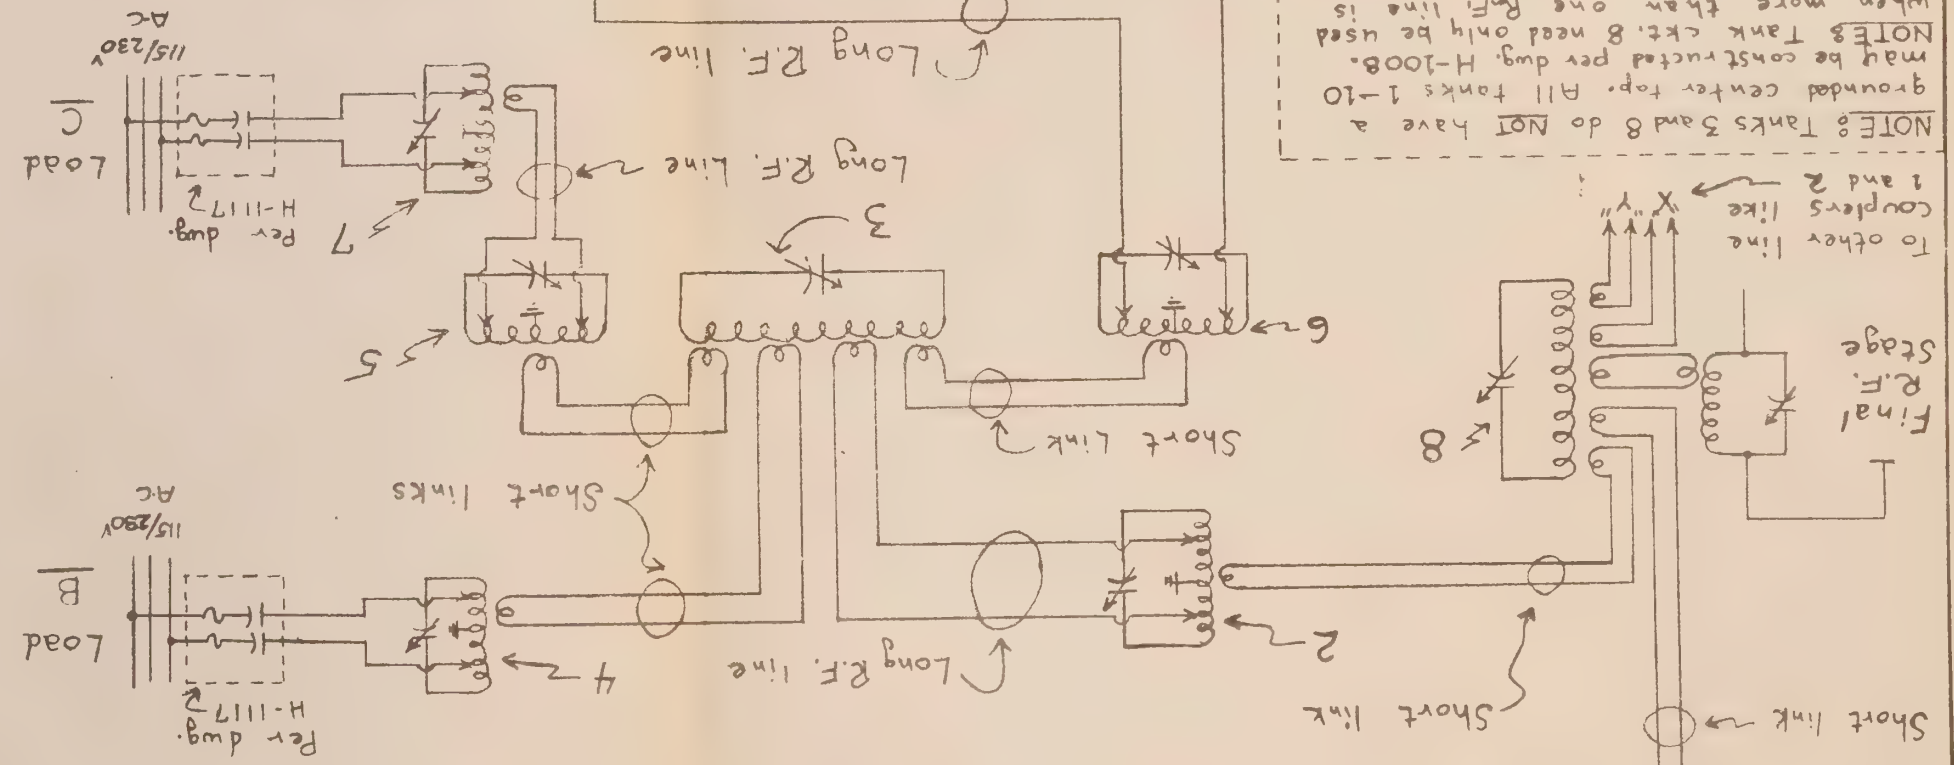 Short link
Short link
2
Long R.F. line
4
Per dwg.
H-1117
Load
B
115/230V
A-C
Short links
Final
R.F.
Stage
8
Short Link
5
6
3
7
To other line
couplers like
1 and 2
"X" "Y"
Long R.F. Line
Per dwg.
H-1117
Load
C
115/230V
A-C
NOTE: Tanks 3 and 8 do NOT have a
grounded center tap. All tanks 1-10
may be constructed per dwg. H-1008.
NOTE: Tank ckt. 8 need only be used
when more than one R.F. line is
Long R.F. line